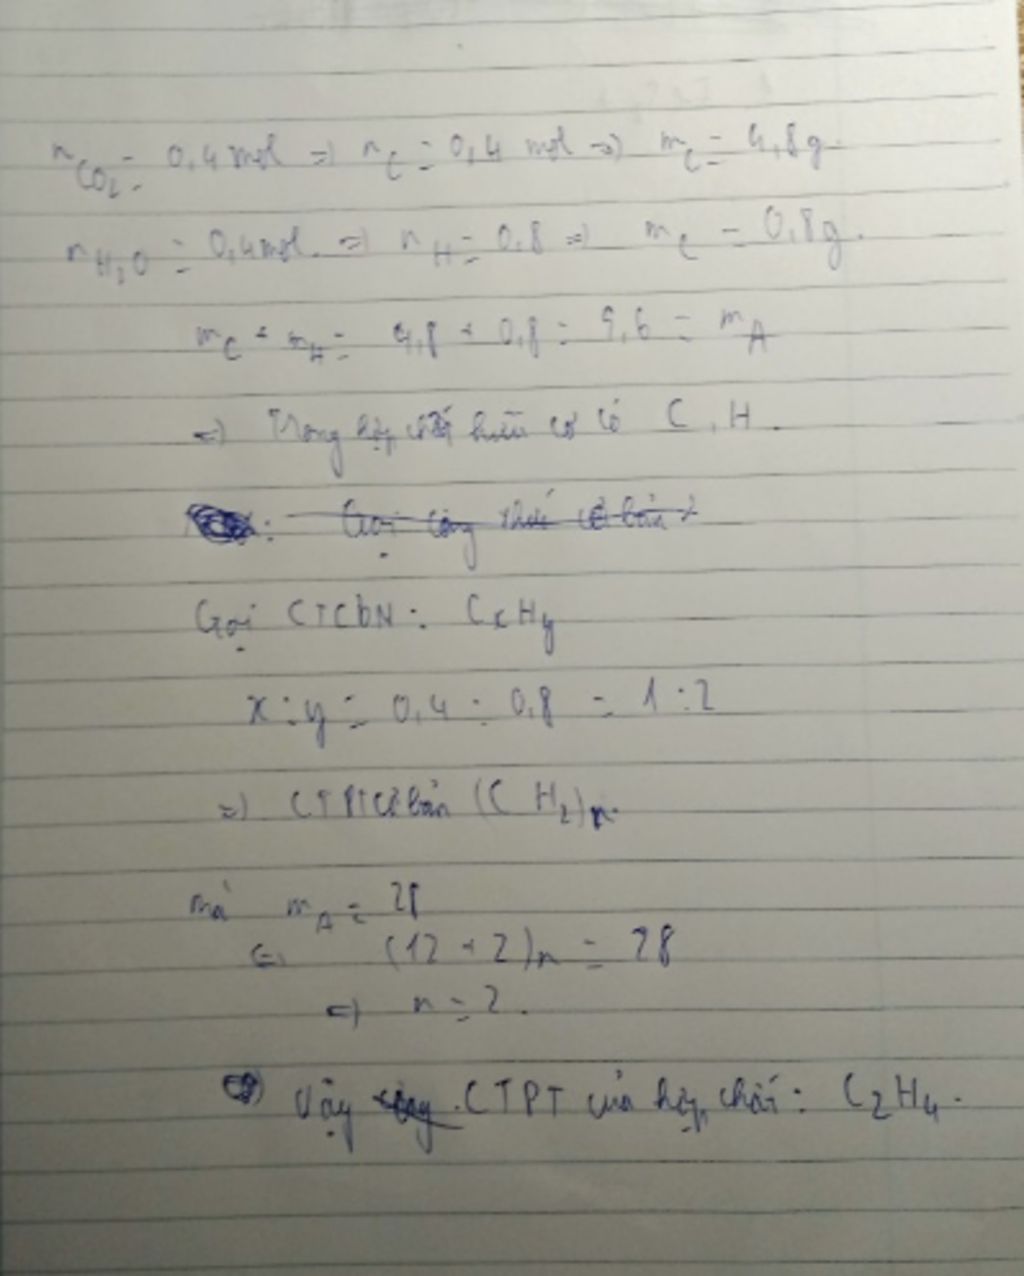 nCO₂ = 0,4 mol => nC = 0,4 mol => mC = 4,8g.
nH₂O = 0,4 mol. => nH = 0,8 => mC = 0,8g.
mC + mH = 4,8 + 0,8 = 5,6 = mA
=> Trong hợp chất hữu cơ có C, H.
Gọi công thức cơ bản
Gọi CTCbN: CxHy
x : y = 0,4 : 0,8 = 1 : 2
=> CTPT cơ bản (CH₂)n.
mà mA = 28
<=> (12 + 2)n = 28
<=> n = 2.
Vậy CTPT của hợp chất: C₂H₄.